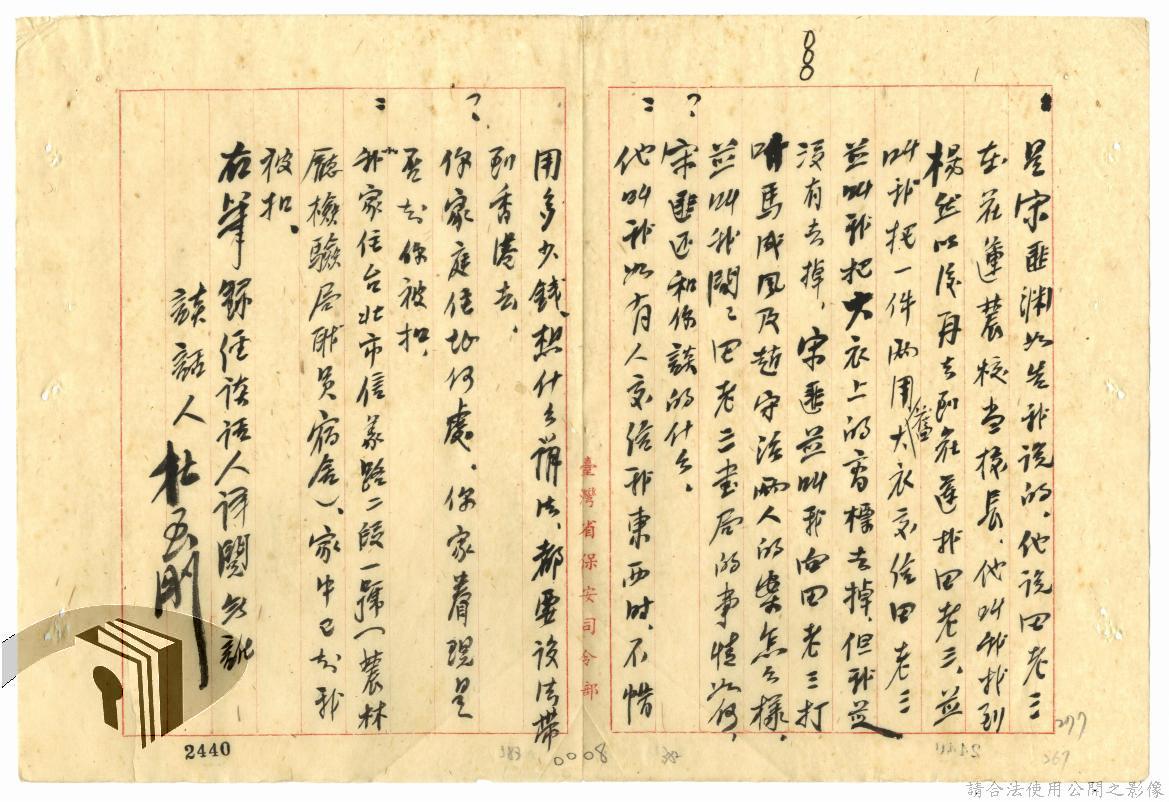 8
是宋匪渊如告我说的，他说田老三
在花蓮農校当校長，他叫我找到
楊然以後再去到花蓮找田老三，並
叫我把一件两用舊大衣交给田老三
並叫我把大衣上的商标去掉，但我並
没有去掉，宋匪並叫我向田老三打
听馬成风及趙守活两人的案怎么樣，
並叫我问问田老三書店的事情如何，
？宋匪还和你談的什么。
：他叫我如有人交给我東西时，不惜
臺灣省保安司令部
用多少钱，想什么辦法，都要设法帶
到香港去，
？你家庭住址何處，你家眷現是
否知你被扣，
：我家住台北市信义路二段一號（農林
廳檢驗局职员宿舍），家中已知我
被扣。
右筆録经谈话人详閱無訛
談話人 杜玉刚
2440
0008
277
267
請合法使用公開之影像